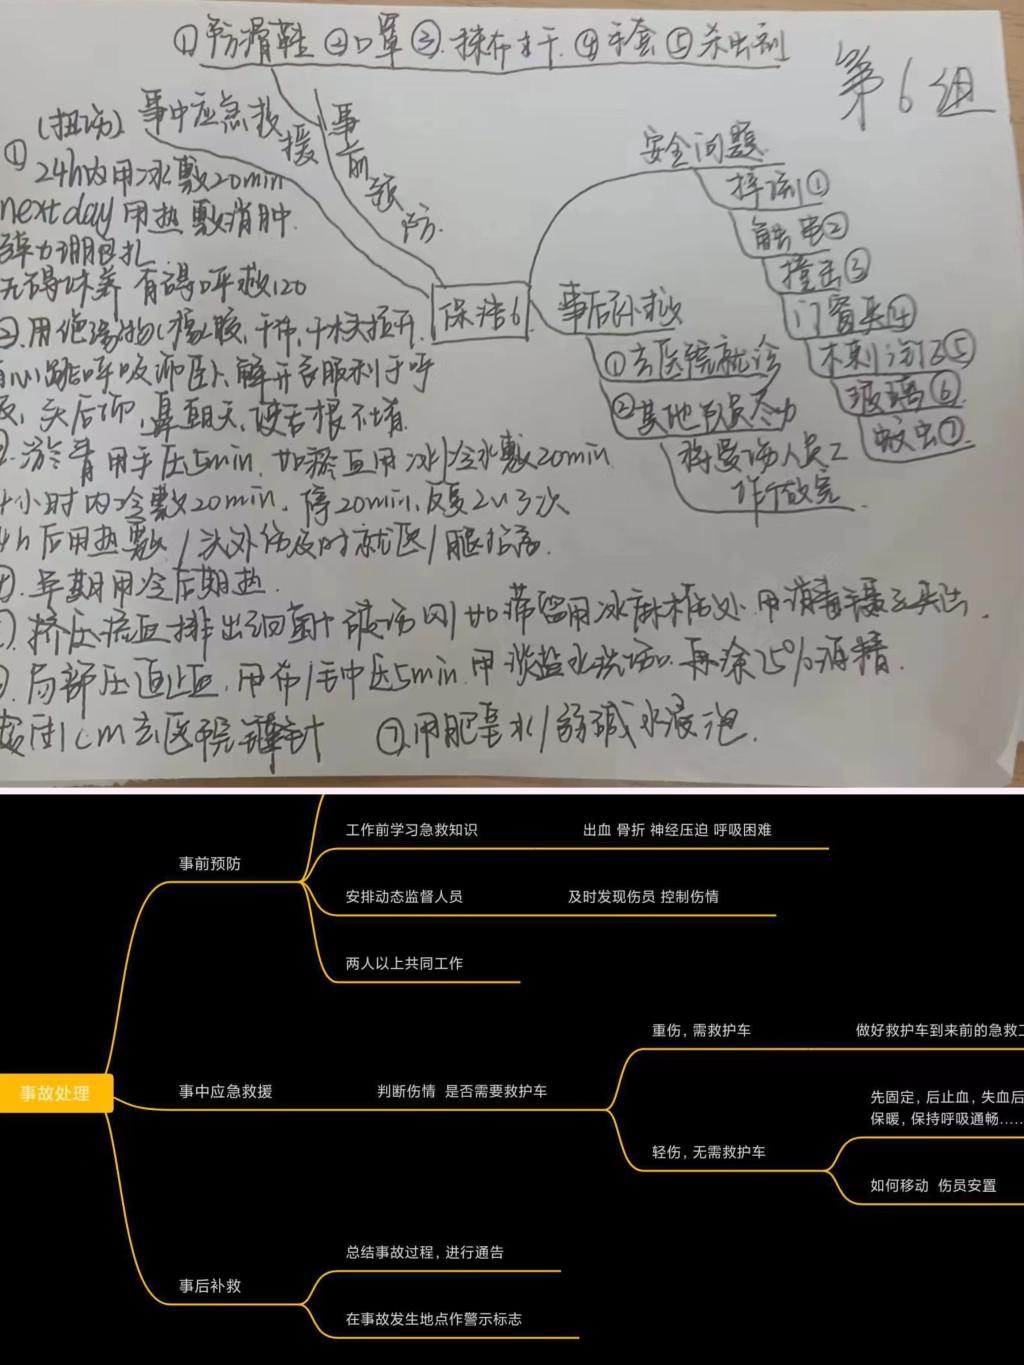 ①防滑鞋 ②口罩 ③擦布擦干 ④手套 ⑤杀虫剂
第6组
事中应急救援
事前预防
(扭伤)
①
24h内用冰敷20min
next day 用热敷消肿
弹力绷包扎
无碍休养 有碍呼救120
用绝缘物(橡胶,干布,干木头拉开
心跳呼吸 解开衣服利于呼
头后仰,鼻朝天,使舌根不堵
淤青用手压5min,如淤血用冰/冷水敷20min
小时内冷敷20min,停20min,反复2~3次
h后用热敷/头外伤及时就医/腿抬高.
早期用冷后期热.
挤压流血排出细菌
用消毒镊子夹出.
局部压迫止血,用布/毛巾压5min.用淡盐水洗伤口.再涂75%酒精.
1cm去医院缝针 ⑦用肥皂水/弱碱水浸泡.
保洁6
安全问题
摔伤①
触电②
撞击③
门窗夹④
木刺⑤
玻璃⑥
蚊虫⑦
事后补救
①去医院就诊
②其他队员尽力
将受伤人员工
作做完
事故处理
事前预防
工作前学习急救知识 出血 骨折 神经压迫 呼吸困难
安排动态监督人员 及时发现伤员 控制伤情
两人以上共同工作
事中应急救援 判断伤情 是否需要救护车
重伤,需救护车 做好救护车到来前的急救工
轻伤,无需救护车
先固定,后止血,失血后
保暖,保持呼吸通畅……
如何移动 伤员安置
事后补救
总结事故过程,进行通告
在事故发生地点作警示标志